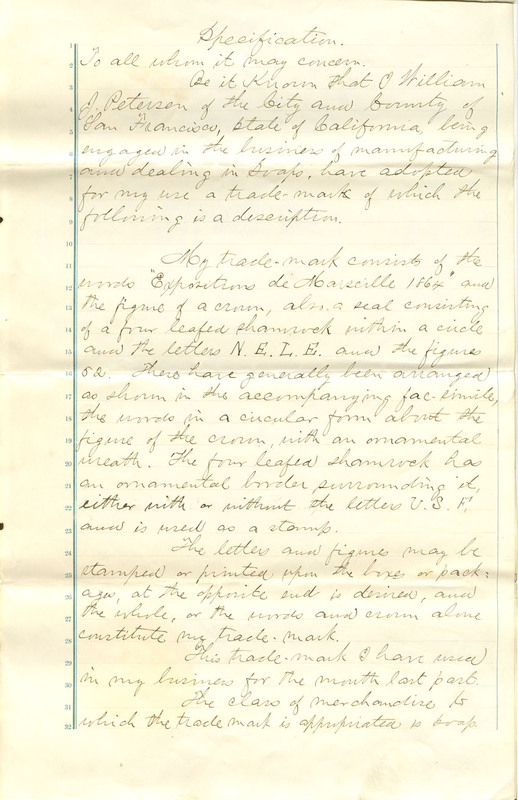 Specification.
1 To all whom it may concern.
2
3 Be it Known that I William
4 J. Petersen of the City and County of
5 San Francisco, State of California, being
6 engaged in the business of manufacturing
7 and dealing in Soaps, have adopted
8 for my use a trade-mark of which the
9 following is a description.
10
11 My trade-mark consists of the
12 words "Expositions de Marseille 1864" and
13 the figure of a crown, also a seal consisting
14 of a four leafed shamrock within a circle
15 and the letters N. E. L. E. and the figures
16 52. These have generally been arranged
17 as shown in the accompanying fac-simile,
18 the words in a circular form about the
19 figure of the crown, with an ornamental
20 wreath. The four leafed shamrock has
21 an ornamental border surrounding it,
22 either with or without the letters U. S. F.
23 and is used as a stamp.
24 The letters and figures may be
25 stamped or printed upon the boxes or pack=
26 ages, at the opposite end is desired, and
27 the whole, or the words and crown alone
28 constitute my trade-mark.
29 This trade-mark I have used
30 in my business for the month last past.
31 The class of merchandise to
32 which the trade mark is appropriated is Soap